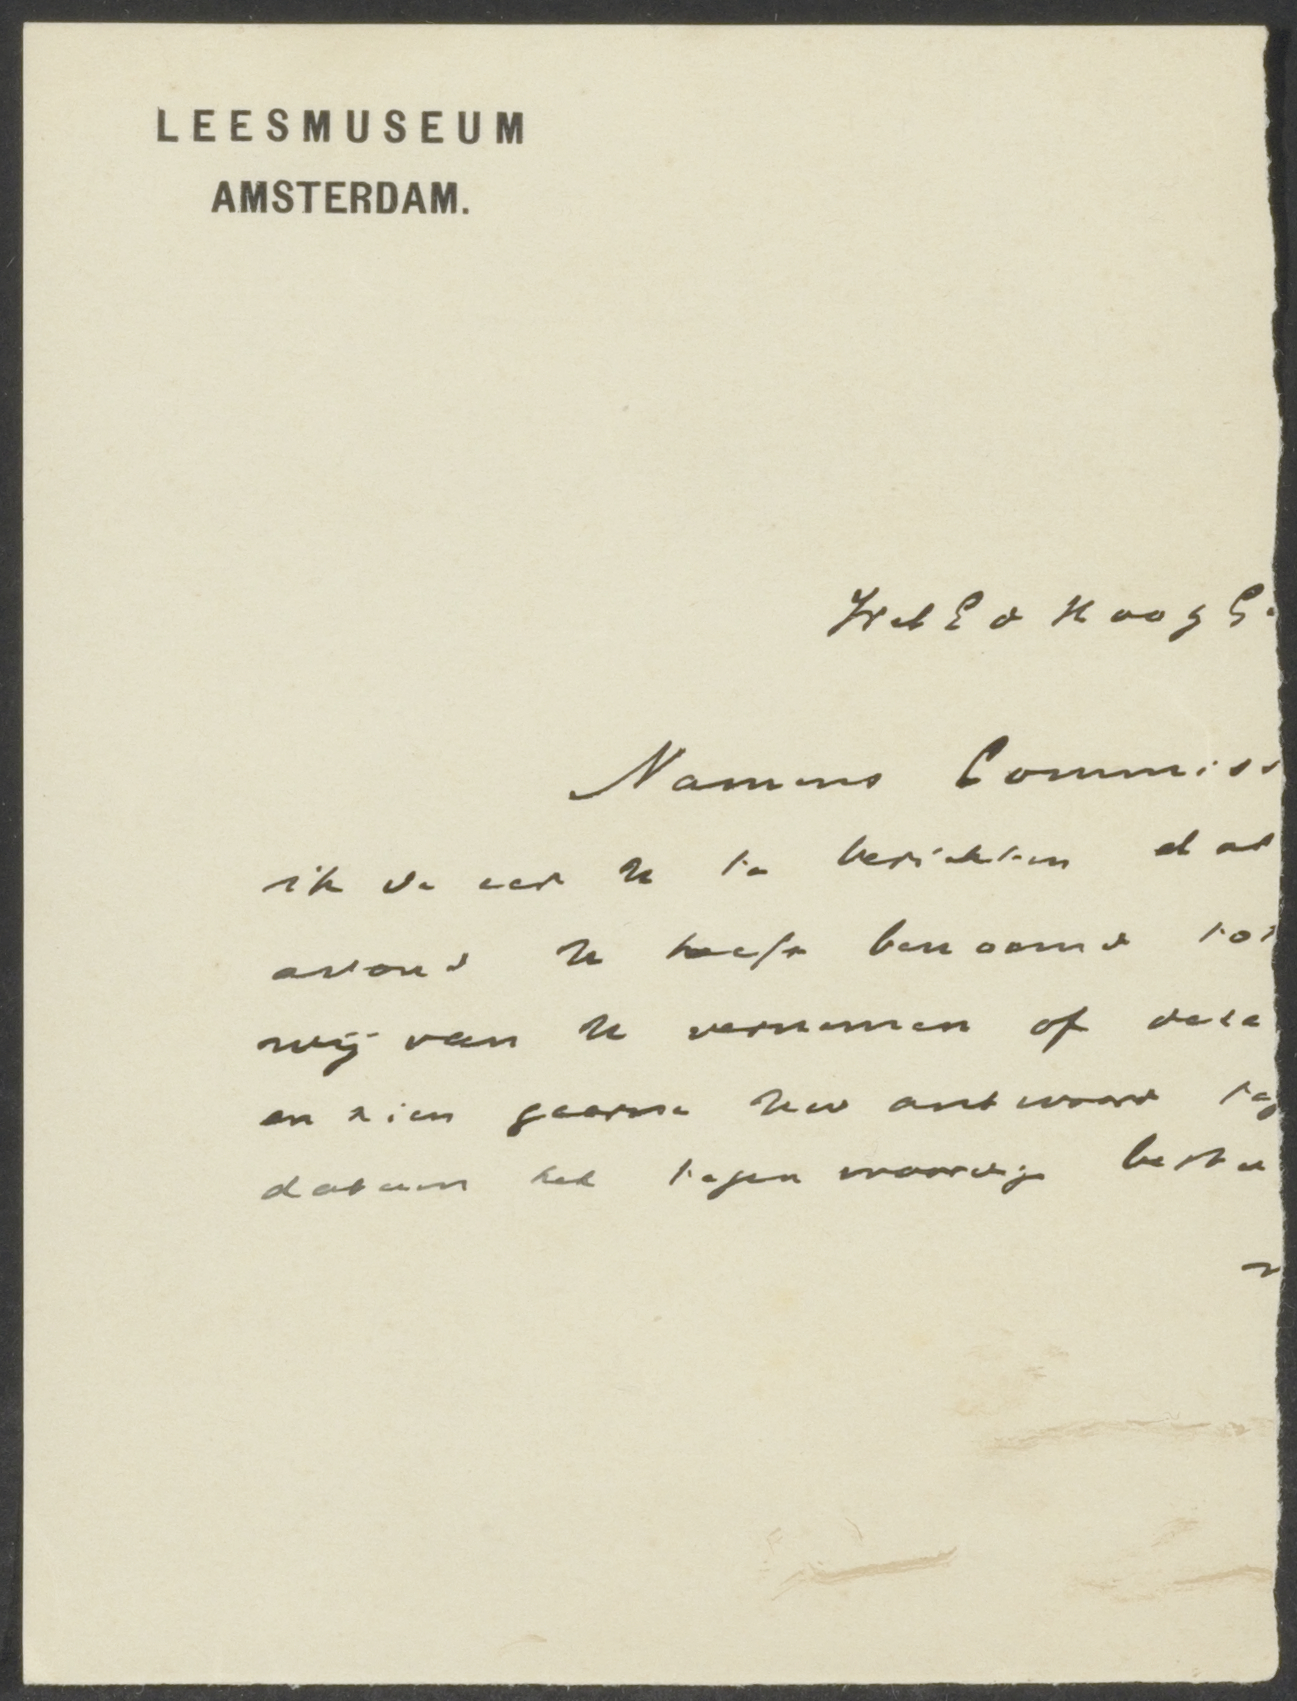 LEESMUSEUM
AMSTERDAM.
WelEd Hoogg
Namens Commiss
ik de eer U te berichten dat
avond U heeft benoemd tot
wij van U vernemen of deze
en zien gaarne Uw antwoord teg
datum het tegenwoordig bestu